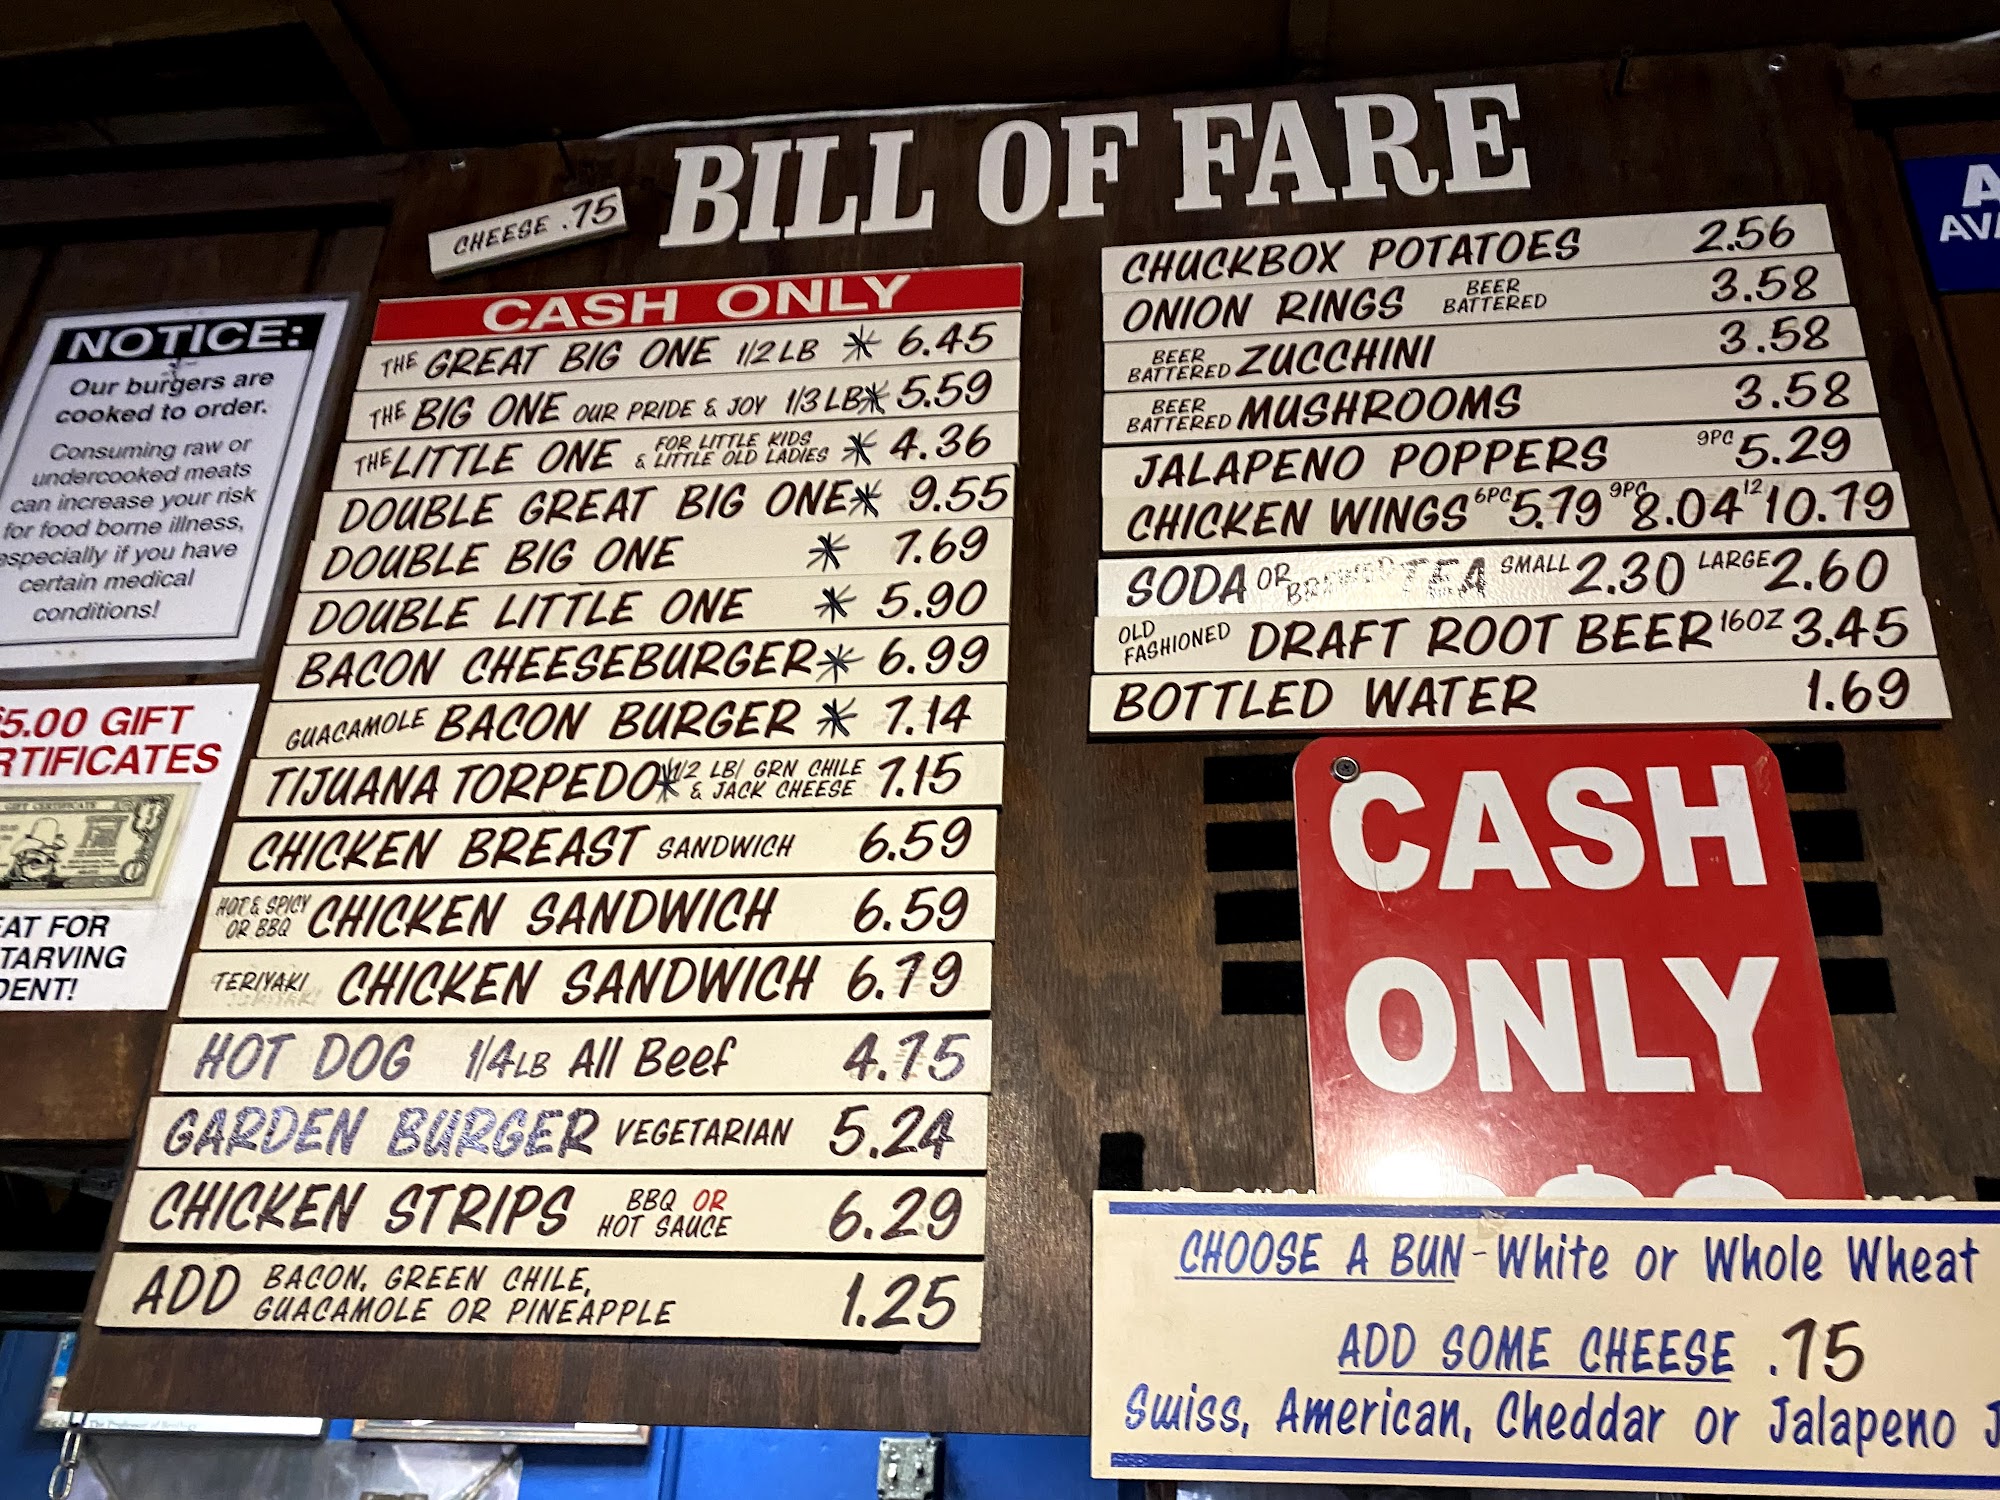 BILL OF FARE
CHEESE .75
CASH ONLY
THE GREAT BIG ONE 1/2 LB * 6.45
THE BIG ONE OUR PRIDE & JOY 1/3 LB * 5.59
THE LITTLE ONE FOR LITTLE KIDS & LITTLE OLD LADIES * 4.36
DOUBLE GREAT BIG ONE * 9.55
DOUBLE BIG ONE * 7.69
DOUBLE LITTLE ONE * 5.90
BACON CHEESEBURGER * 6.99
GUACAMOLE BACON BURGER * 7.14
TIJUANA TORPEDO * 1/2 LB/ GRN CHILE & JACK CHEESE 7.15
CHICKEN BREAST SANDWICH 6.59
HOT & SPICY OR BBQ CHICKEN SANDWICH 6.59
TERIYAKI CHICKEN SANDWICH 6.79
HOT DOG 1/4 LB All Beef 4.75
GARDEN BURGER VEGETARIAN 5.24
CHICKEN STRIPS BBQ OR HOT SAUCE 6.29
ADD BACON, GREEN CHILE, GUACAMOLE OR PINEAPPLE 1.25
CHUCKBOX POTATOES 2.56
ONION RINGS BEER BATTERED 3.58
BEER BATTERED ZUCCHINI 3.58
BEER BATTERED MUSHROOMS 3.58
JALAPENO POPPERS 9PC 5.29
CHICKEN WINGS 6PC 5.79 9PC 8.04 12 10.79
SODA OR BREWED TEA SMALL 2.30 LARGE 2.60
OLD FASHIONED DRAFT ROOT BEER 16OZ 3.45
BOTTLED WATER 1.69
CASH
ONLY
CHOOSE A BUN - White or Whole Wheat
ADD SOME CHEESE .75
Swiss, American, Cheddar or Jalapeno J
NOTICE:
Our burgers are
cooked to order.
Consuming raw or
undercooked meats
can increase your risk
for food borne illness,
especially if you have
certain medical
conditions!
5.00 GIFT
RTIFICATES
GIFT CERTIFICATE
AT FOR
TARVING
DENT!
A
AV